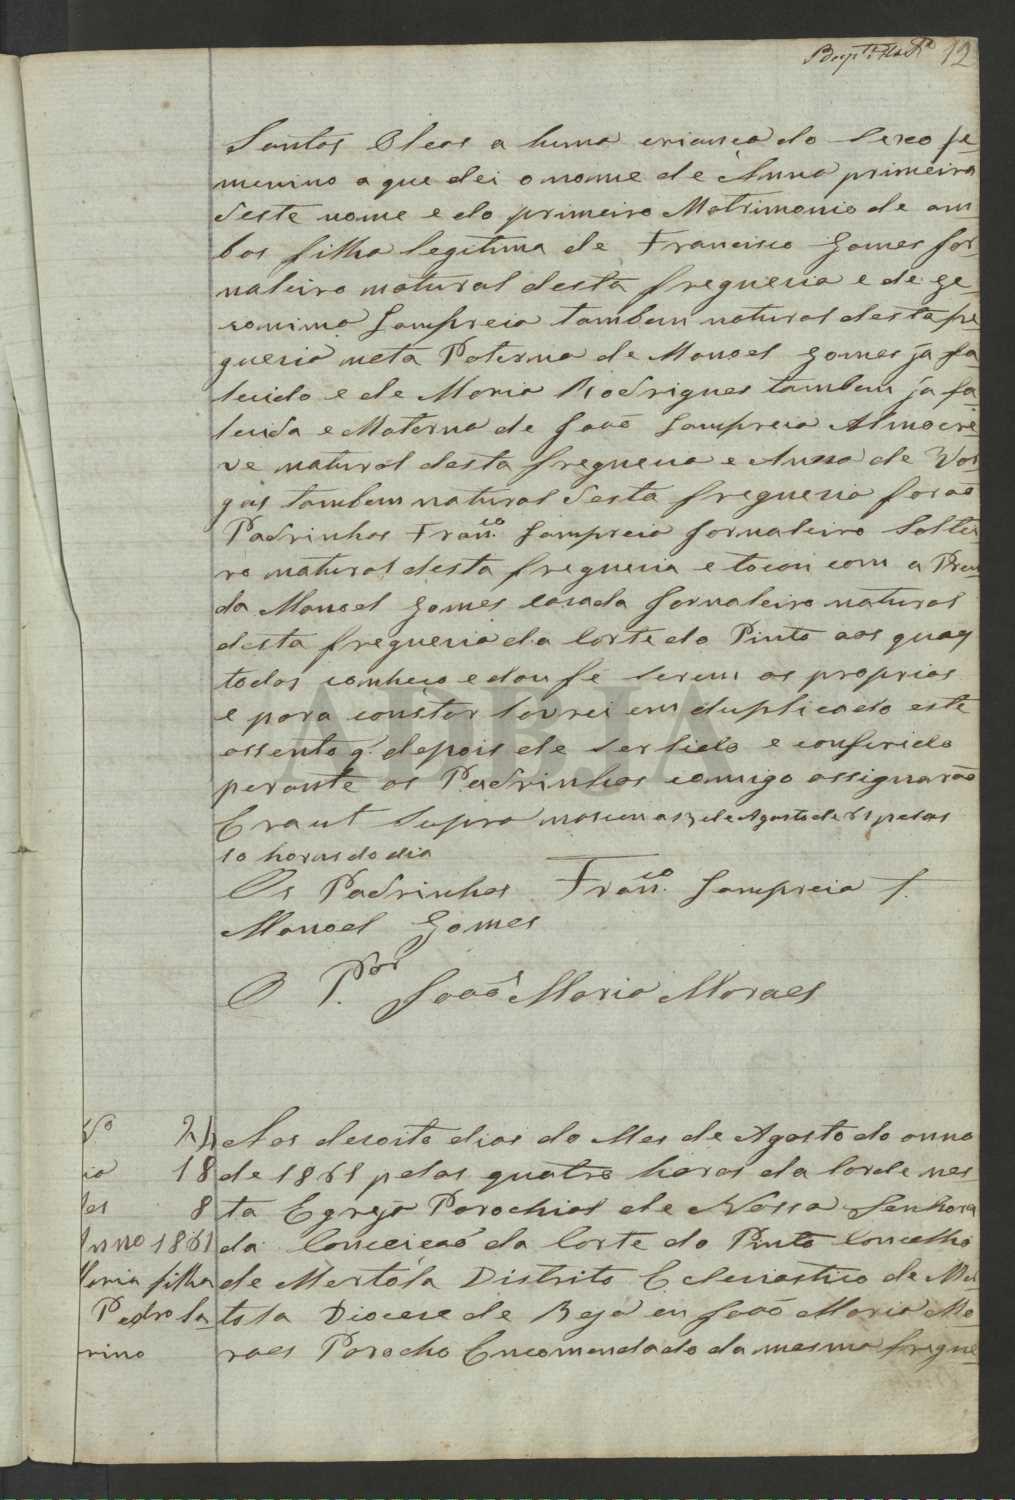 12
Santos Oleos a huma criança do Sexo fe-
menino a que dei o nome de Anna primeira
deste nome e do primeiro Matrimonio de am-
bos filha legitima de Francisco Gomes jor-
naleiro natural desta freguesia e de Ge-
ronima Lampreia tambem natural desta fre-
guesia neta Paterna de Manoel Gomes ja fa-
lecido e de Maria Rodrigues tambem ja fa-
lecida e Materna de João Lampreia Almocre-
ve natural desta freguesia e Anna de Var-
gas tambem natural desta freguesia forão
Padrinhos Fran.co Lampreia jornaleiro Soltei-
ro natural desta freguesia e tocou com a Pren-
da Manoel Gomes casado jornaleiro natural
desta freguesia da Corte do Pinto aos quaes
todos conheço e dou fe serem os proprios
e para constar lavrei em duplicado este
assento q. depois de ser lido e conferido
perante os Padrinhos comigo assignarão
Era ut Supra nasceu a 3 de Agosto de 61 pelas
10 horas do dia
Os Padrinhos Fran.co Lampreia
Manoel Gomes
O P.or João Maria Moraes
Nº 24
18
8
Anno 1861
Maria filha
Pedro La-
rino
Aos desoito dias do Mes de Agosto do anno
de 1861 pelas quatro horas da tarde nes-
ta Egreja Parochial de Nossa Senhora
da Conceicaõ da Corte do Pinto Concelho
de Mertola Distrito Eclesiastico de Mer-
tola Diocese de Beja eu João Maria Mo-
raes Parocho Encomendado da mesma fregue-
ADBJA